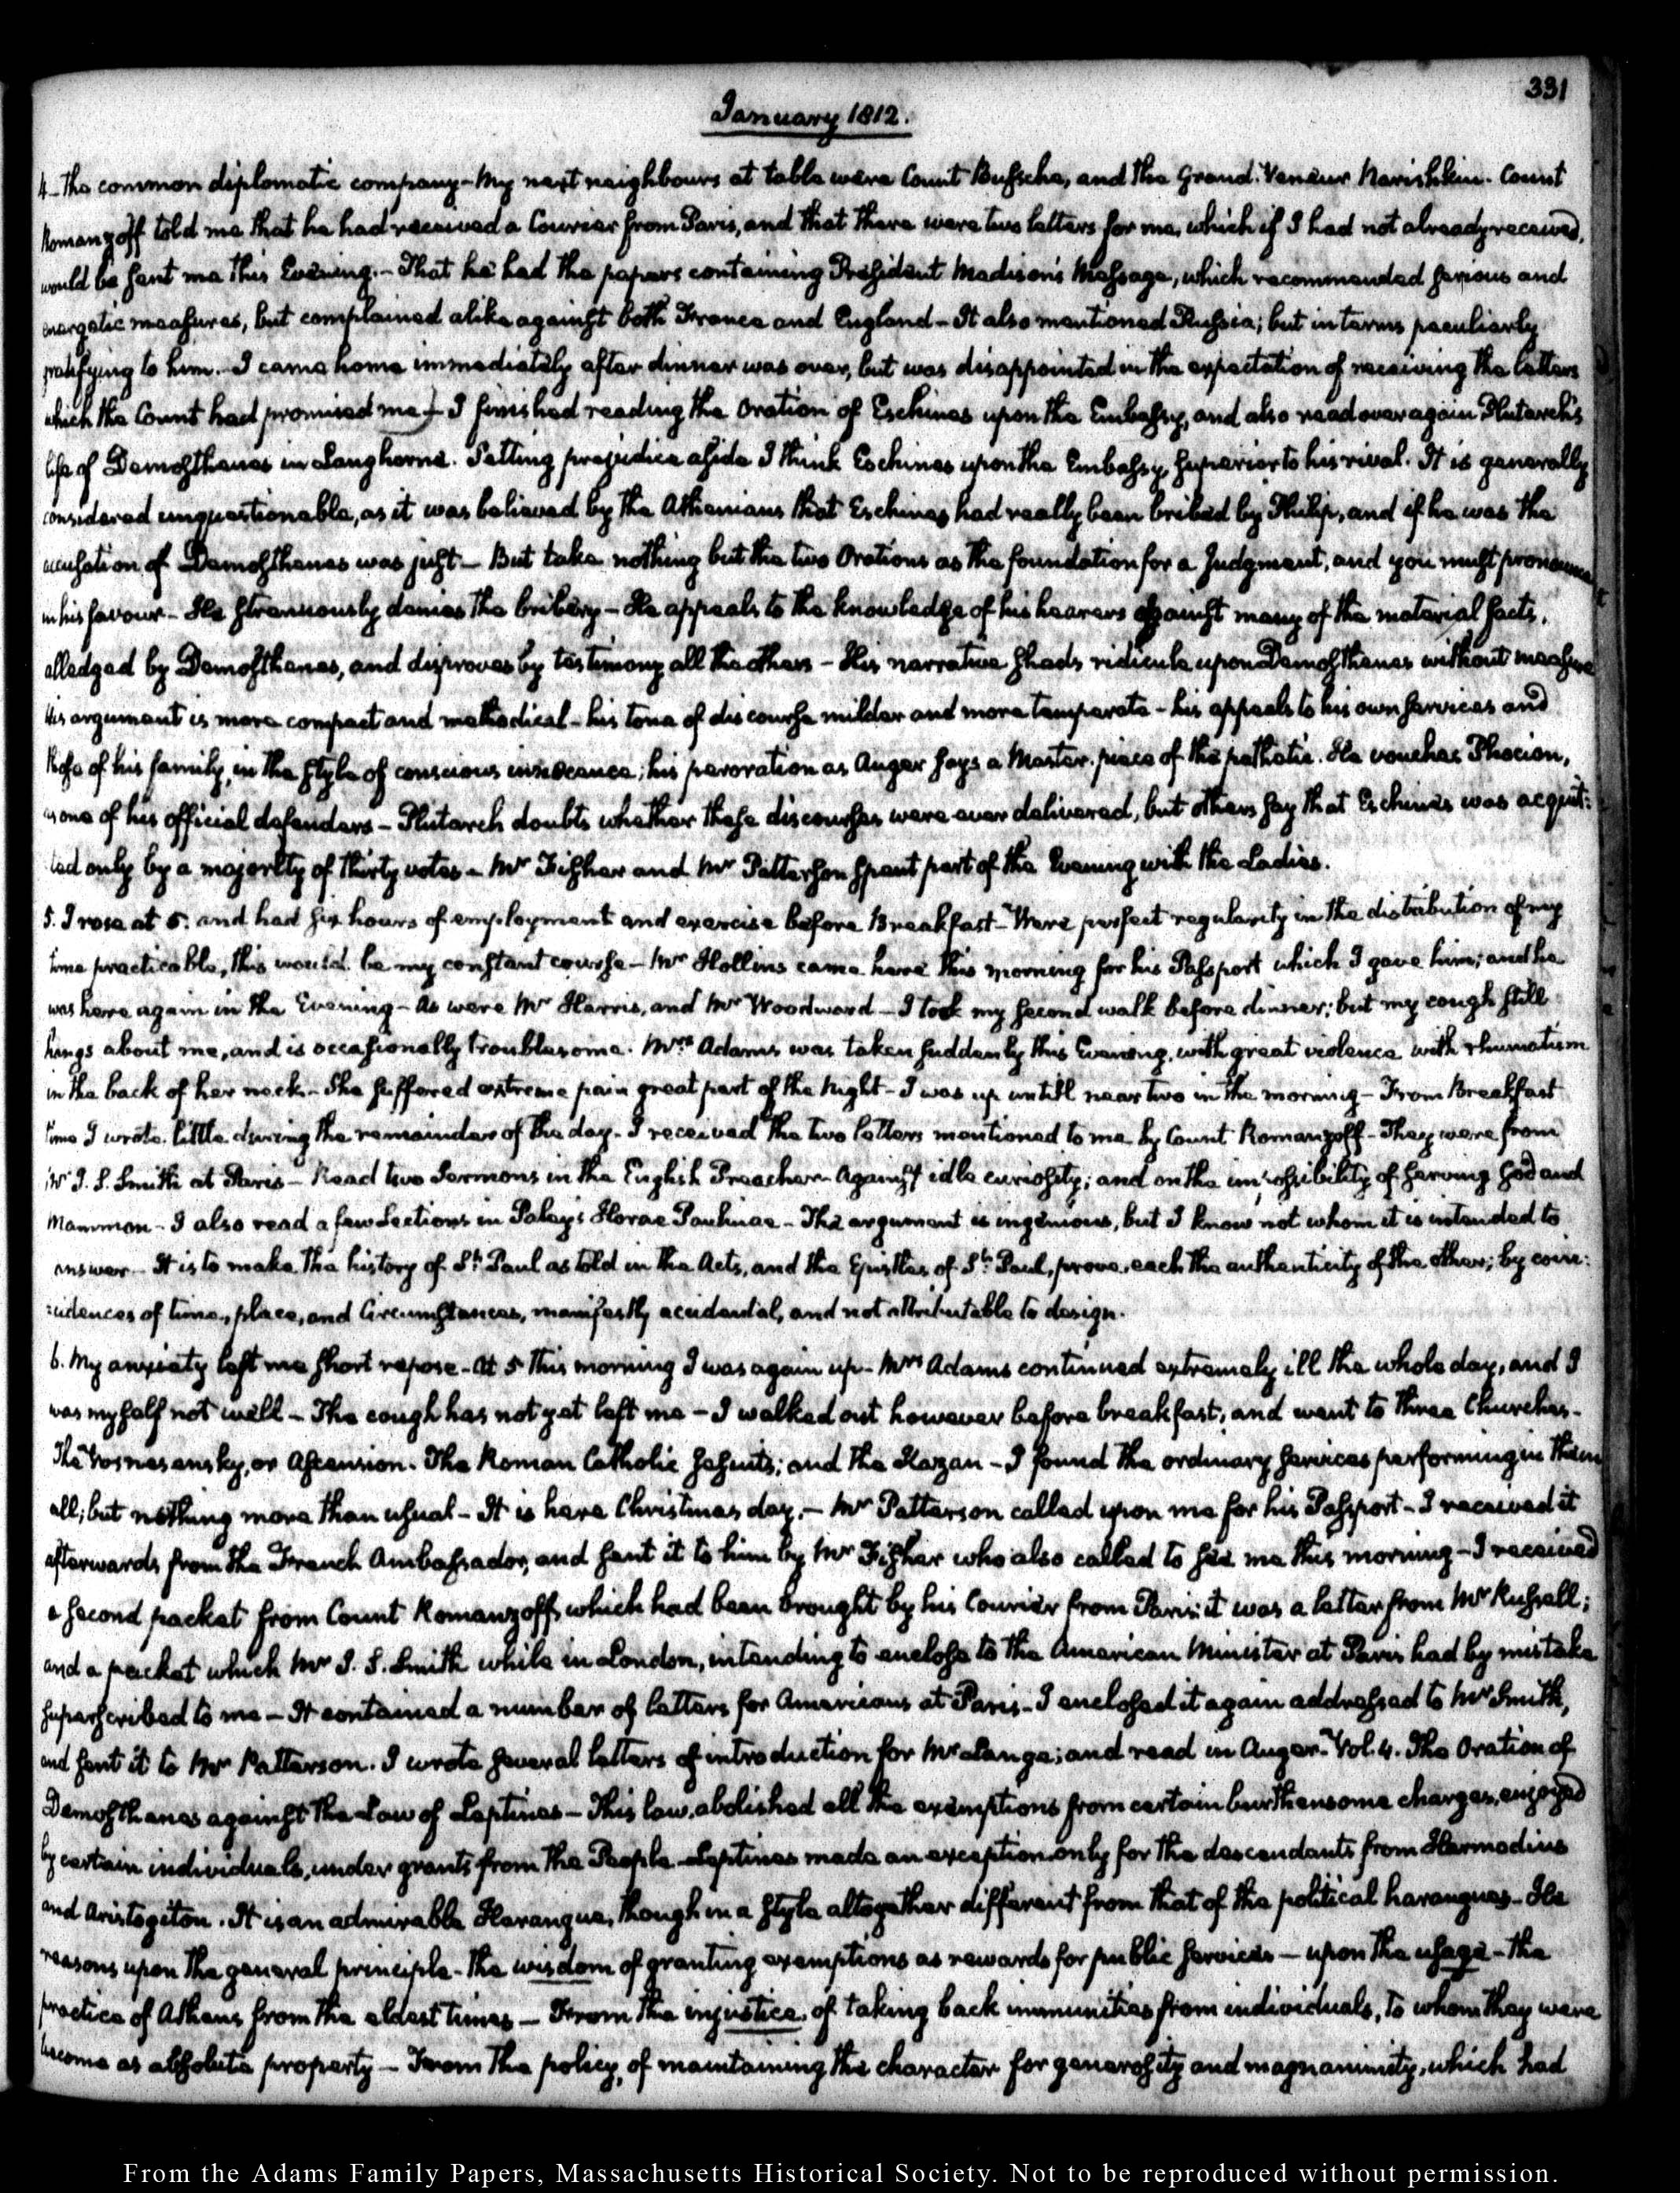 331
January 1812.
4. The common diplomatic company - My next neighbours at table were Count Bussche, and the Grand-Veneur Narishkin. Count
Romanzoff told me that he had received a Courier from Paris, and that there were two letters for me, which if I had not already received,
would be sent me this Evening. - That he had the papers containing President Madison's Message, which recommended serious and
energetic measures, but complained alike against both France and England - It also mentioned Russia; but in terms peculiarly
gratifying to him. - I came home immediately after dinner was over, but was disappointed in the expectation of receiving the letters
which the Count had promised me - I finished reading the Oration of Eschines upon the Embassy, and also read over again Plutarch's
life of Demosthenes in Langhorne. Setting prejudice aside I think Eschines upon the Embassy, superior to his rival. It is generally
considered unquestionable, as it was believed by the Athenians that Eschines had really been bribed by Philip, and if he was the
accusation of Demosthenes was just - But take nothing but the two Orations as the foundation for a Judgment, and you must pronounce
in his favour - He strenuously denies the bribery - He appeals to the knowledge of his hearers against many of the material facts,
alledged by Demosthenes, and disproves by testimony all the others - His narrative sheds ridicule upon Demosthenes without measure
His argument is more compact and methodical - his tone of discourse milder and more temperate - his appeals to his own services and
those of his family, in the style of conscious innocence; his peroration as Auger says a Master-piece of the pathetic. He vouches Phocion,
as one of his official defenders - Plutarch doubts whether these discourses were ever delivered, but others say that Eschines was acquit:
ted only by a majority of thirty votes - Mr Fisher and Mr Patterson spent part of the Evening with the Ladies.
5. I rose at 5. and had six hours of employment and exercise before Breakfast - Were perfect regularity in the distribution of my
time practicable, this would be my constant course - Mr Hollins came here this morning for his Passport which I gave him; and he
was here again in the Evening - As were Mr Harris, and Mr Woodward - I took my second walk before dinner; but my cough still
hangs about me, and is occasionally troublesome. Mrs Adams was taken suddenly this Evening, with great violence with rhumatism
in the back of her neck - She suffered extreme pain great part of the Night - I was up untill near two in the morning - From Breakfast
time I wrote little during the remainder of the day - I received the two letters mentioned to me by Count Romanzoff - They were from
Mr J. S. Smith at Paris - Read two Sermons in the English Preacher - Against idle curiosity; and on the impossibility of serving God and
Mammon - I also read a few Sections in Paley's Horae Paulinae - The argument is ingenious, but I know not whom it is intended to
answer - It is to make the history of St. Paul as told in the Acts, and the Epistles of St. Paul, prove each the authenticity of the other; by coin:
cidences of time, place, and Circumstances, manifestly accidental, and not attributable to design.
6. My anxiety left me short repose - At 5 this morning I was again up - Mrs Adams continued extremely ill the whole day, and I
was myself not well - The cough has not yet left me - I walked out however before breakfast, and went to three Churches -
The Vosnesensky, or Ascension. The Roman Catholic Jesuits; and the Kazan - I found the ordinary services performing in them
all; but nothing more than usual - It is here Christmas day. - Mr Patterson called upon me for his Passport - I received it
afterwards from the French Ambassador, and sent it to him by Mr Fisher who also called to see me this morning - I received
a second packet from Count Romanzoff, which had been brought by his Courier from Paris: it was a letter from Mr Russell;
and a packet which Mr J. S. Smith while in London, intending to enclose to the American Minister at Paris had by mistake
superscribed to me - It contained a number of letters for Americans at Paris - I enclosed it again addressed to Mr Smith,
and sent it to Mr Patterson. I wrote several letters of introduction for Mr Lange; and read in Auger Vol. 4. The Oration of
Demosthenes against the Law of Leptines - This law abolished all the exemptions from certain burthensome charges, enjoyed
by certain individuals, under grants from the People - Leptines made an exception only for the descendants from Harmodius
and Aristogiton. It is an admirable Harangue, though in a style altogether different from that of the political harangues - He
reasons upon the general principle - the wisdom of granting exemptions as rewards for public services - upon the usage - the
practice of Athens from the eldest times - From the injustice, of taking back immunities from individuals, to whom they were
become as absolute property - From the policy, of maintaining the character for generosity and magnanimity, which had
From the Adams Family Papers, Massachusetts Historical Society. Not to be reproduced without permission.